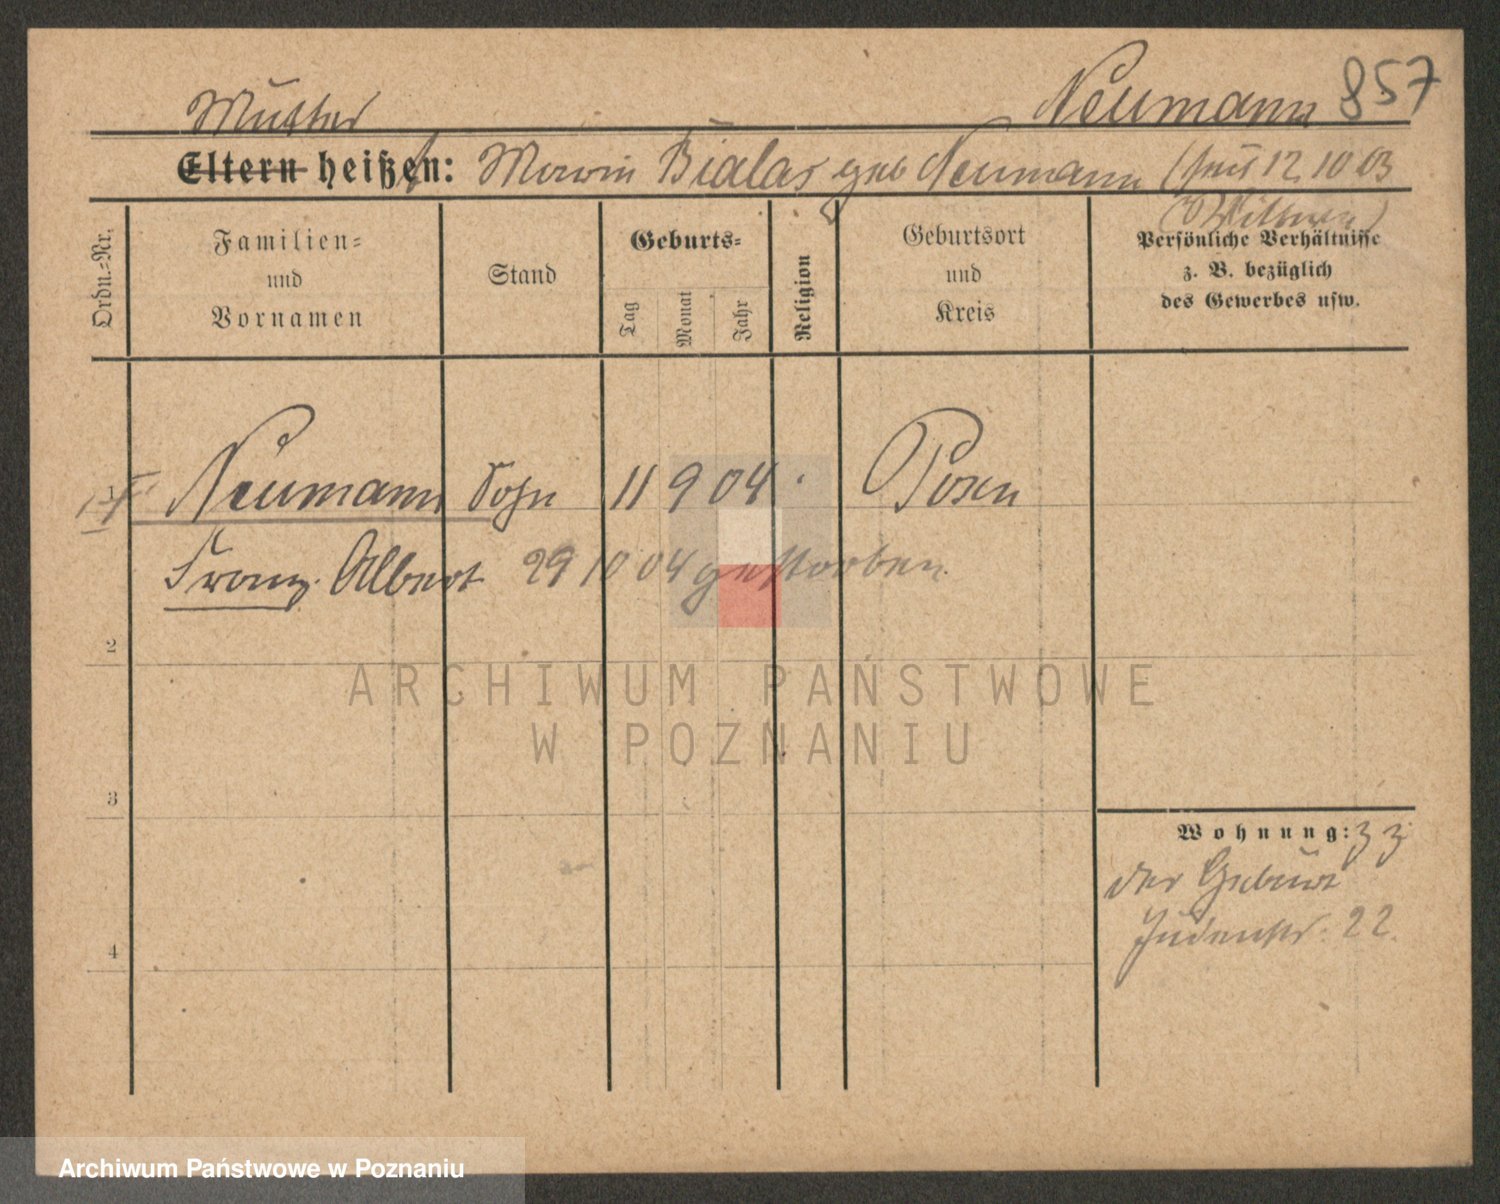 Neumann 857
Mutter
Eltern heißen: Maria Bialas geb Neumann (seit 12 10 03
Witwe)
Ordn.=Nr.
Familien=
und
Vornamen
Stand
Geburts=
Tag
Monat
Jahr
Religion
Geburtsort
und
Kreis
Persönliche Verhältnisse
z. B. bezüglich
des Gewerbes usw.
1 Neumann Sohn 11 9 04 Posen
Franz Albert 29 10 04 gestorben.
2
3
4
Wohnung: z z
der Geburt
Judenstr. 22.
ARCHIWUM PAŃSTWOWE
W POZNANIU
Archiwum Państwowe w Poznaniu